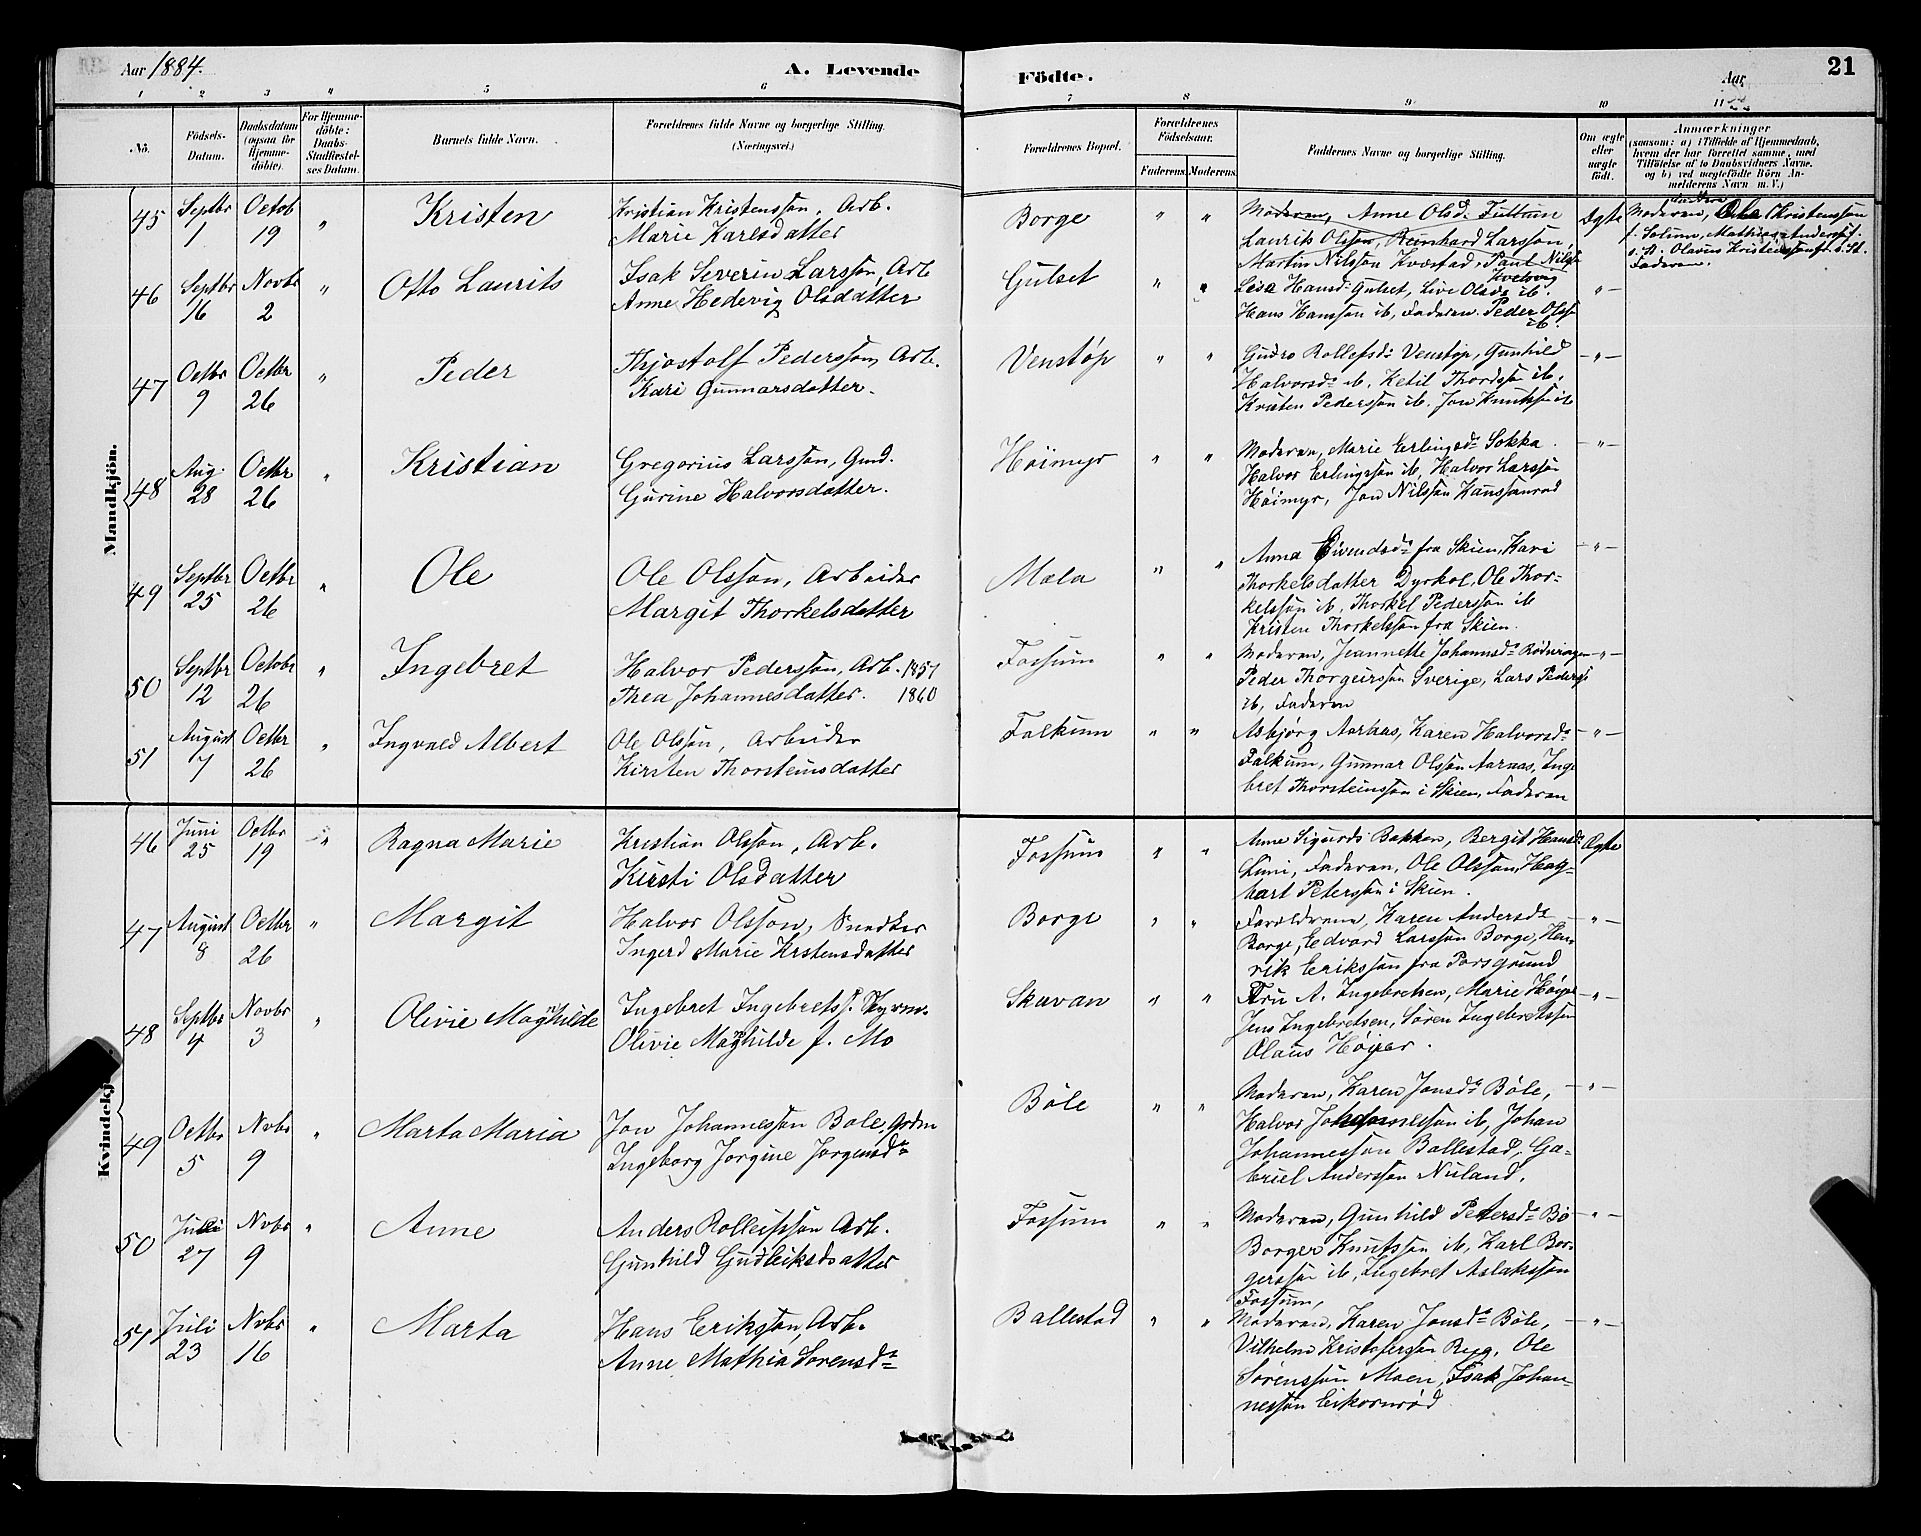 Aar 1884. A. Levende Födte. Aar 21
1 2 3 4 5 6 7 8 9 10 11
No.
Födsels-Datum.
Daabsdatum (ogsaa for Hjemme-döbte).
For Hjemme-döbte: Daabs-Stadfæstel-ses Datum.
Barnets fulde Navn.
Forældrenes fulde Navne og borgerlige Stilling. (Næringsvei.)
Forældrenes Bopæl.
Forældrenes Födselsaar.
Faderens. Moderens.
Faddernes Navne og borgerlige Stilling.
Om ægte eller uægte födt.
Anmærkninger
(saasom: a) i Tilfælde af Hjemmedaab,
hvem der har forrettet samme, med
Tilföielse af to Daabsvidners Navne.
og b) ved uægtefödte Börn An-
melderens Navn m. V.)
Mandkjön.
45 Septbr 1 Octob 19 " Kristen
Kristian Kristenssøn, Arb.
Marie Karlsdatter
Borge " "
Moderen, Anne Olsd.
Laurits Olssøn, Reinhard Larssøn,
Martin Nilsson Kvæstad, Paul Nilss.
Ægte
Moderen, Ole Kristenssøn
f. Solum, Mathias Anderss.
Faderen.
46 Septbr 16 Novbr 2 " Otto Laurits
Isak Severin Larssøn, Arb
Anne Hedevig Olsdatter
Gulset " "
Lisa Hansd. Gulset, Live Olsd. ib.
Hans Hanssøn ib, Faderen. Peder Olss. ib.
— " —
47 Octbr 9 Octbr 26 " Peder
Thjostolf Pederssøn, Arb.
Kari Gunnarsdatter.
Venstøp " "
Guro Rollefsd. Venstøp, Gunhild
Halvorsd. ib, Ketil Thordssøn ib,
Kristen Pederssøn ib, Jon Knutssøn ib
— " —
48 Aug. 28 Octbr 26 " Kristian
Gregorius Larssøn, Gmd.
Gurine Halvorsdatter.
Høimyr " "
Moderen, Marie Erlingsd. Sokka.
Halvor Erlingssøn ib, Halvor Larssøn
Høimyr, Jon Nilssøn Hanssønrød
— " —
49 Septbr 25 Octbr 26 " Ole
Ole Olssøn, Arbeider
Margit Thorkelsdatter
Mæla " "
Anna Eivendsd. fra Skien, Kari
Thorkelsdatter Dyrkol, Ole Thor-
kelssøn ib, Thorkel Pederssøn ib
Kristen Thorkelssøn fra Skien.
— " —
50 Septbr 12 Octobr 26 " Ingebret
Halvor Pederssøn, Arb. 1857
Thea Johannesdatter. 1860
Fossum " "
Moderen, Jeannette Johannsd. Rødningen
Peder Thorgeirssøn Sverige, Lars Pederss
ib, Faderen
— " —
51 August 7 Octbr 26 " Ingvald Albert
Ole Olssøn, Arbeider
Kirsten Thorsteinsdatter
Falkum " "
Asbjørg Aarnæs, Karen Halvorsd.
Falkum, Gunnar Olssøn Aarnæs, Inge
bret Thorsteinssøn i Skien, Faderen
— " —
Kvindekj
46 Juni 25 Octbr 19 " Ragna Marie
Kristian Olssøn, Arb.
Kirsti Olsdatter
Fossum " "
Anne Sigurds. Bakken, Bergit Hansd.
Limi, Faderen, Ole Olssøn, Hag-
bart Peterssøn i Skien.
Ægte
47 August 8 Octbr 26 " Margit
Halvor Olssøn, Snedker
Ingerd Marie Krstensdatter
Borge " "
Forældrene, Karen Andersd.
Borge, Edvard Larssøn Borge, Hen-
rik Erikssøn fra Porsgrund
— " —
48 Septbr 4 Novbr 3 " Olivie Maghilde
Ingebret Ingebrets.
Olivie Maghilde f. Mo
Skavan " "
Fru A. Ingebretsen, Marie Høyer
Jens Ingebretsen, Søren Ingebretssen
Olaus Høyer.
— " —
49 Octbr 5 Novbr 9 " Marta Maria
Jon Johannessøn Bøle, Grdm
Ingeborg Jørgine Jørgensd.
Bøle " "
Moderen, Karen Jonsd. Bøle,
Halvor Johannessøn ib, Johan
Johannessøn Ballestad, Ga-
briel Anderssøn Niland.
— " —
50 Juli 27 Novbr 9 " Anne
Anders Rolleifssøn Arb.
Gunhild Gudleiksdatter
Fossum " "
Moderen, Gunhild Petersd. Bø
Borger Knutssøn ib, Karl Bor-
gerssøn ib, Ingebret Aslakssøn
Fossum,
— " —
51 Juli 23 Novbr 16 " Marta
Hans Erikssøn, Arb.
Anne Mathia Sørensd.
Ballestad " "
Moderen, Karen Jonsd. Bøle,
Vilhelm Kristoferssøn Ryg, Ole
Sørenssøn Moen, Isak Johan-
nessøn Eikornrød
— " —